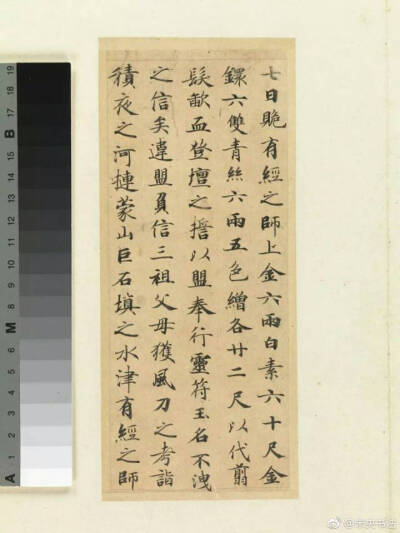 七日有經之師上金六兩白素六十尺金
鐶六雙青絲六兩五色繒各廿二尺以代翦
髮歃血登壇之擔以盟奉行靈符玉名不洩
之信矣違盟負信三祖父母獲風刀之考詣
積夜之河摙蒙山巨石填之水津有經之師
19
18
17
16
15
B
14
13
12
11
10
M
8
7
6
5
4
3
2
1
A
@未央书法